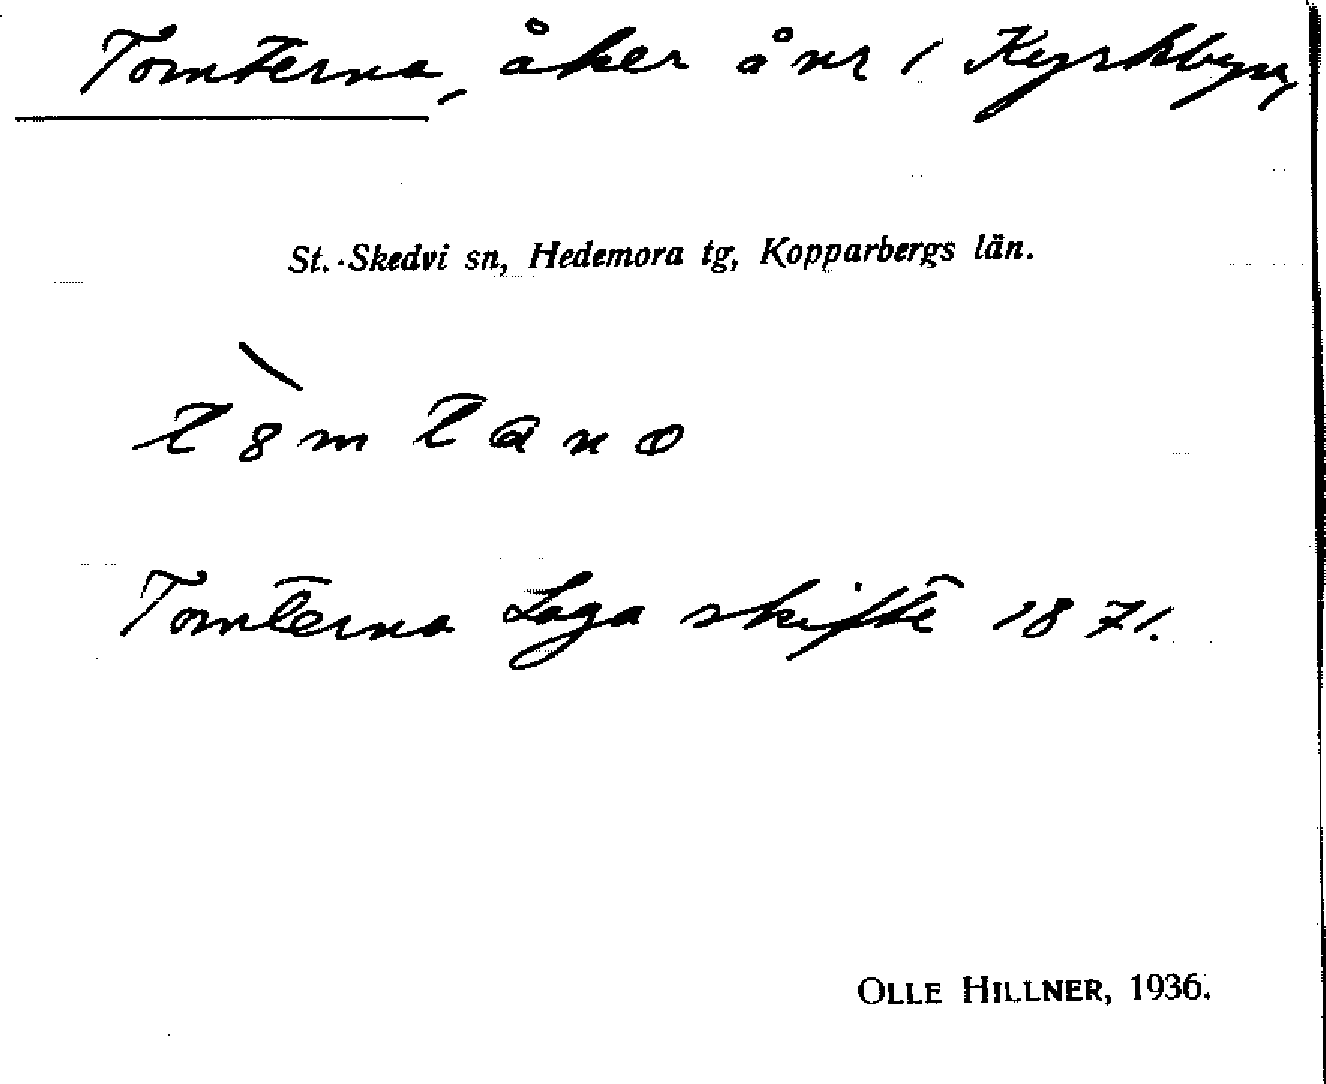 Tomterna, åker å nr 1 Kyrkbyn,
St.-Skedvi sn, Hedemora tg, Kopparbergs län.
Tomterna Laga skifte 1871.
OLLE HILLNER, 1936.